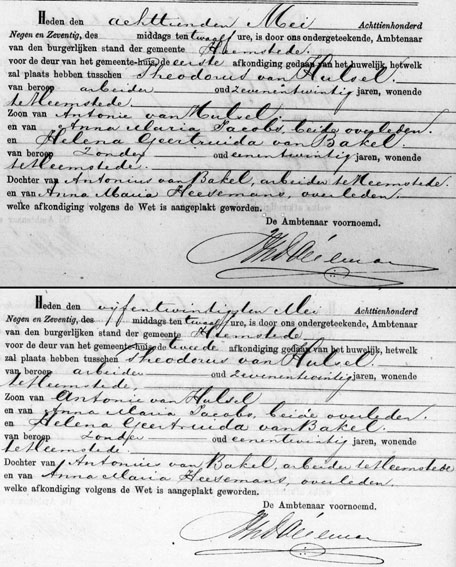 Heden den achttienden Mei Achttienhonderd
Negen en Zeventig, des middags ten twaalf ure, is door ons ondergeteekende, Ambtenaar
van den burgerlijken stand der gemeente Heemstede
voor de deur van het gemeente-huis, de eerste afkondiging gedaan van het huwelijk, hetwelk
zal plaats hebben tusschen Theodorus van Hulsel.
van beroep arbeider oud zevenentwintig jaren, wonende
te Heemstede.
Zoon van Antonie van Hulsel
en van Anna Maria Jacobs, beide overleden.
en Helena Geertruida van Bakel.
van beroep Zonder oud eenentwintig jaren, wonende
te Heemstede.
Dochter van Antonius van Bakel, arbeider te Heemstede.
en van Anna Maria Heesemans, overleden.
welke afkondiging volgens de Wet is aangeplakt geworden.
De Ambtenaar voornoemd.
Heden den vijfentwintigsten Mei Achttienhonderd
Negen en Zeventig, des middags ten twaalf ure, is door ons ondergeteekende, Ambtenaar
van den burgerlijken stand der gemeente Heemstede
voor de deur van het gemeente-huis, de tweede afkondiging gedaan van het huwelijk, hetwelk
zal plaats hebben tusschen Theodorus van Hulsel.
van beroep arbeider oud zevenentwintig jaren, wonende
te Heemstede.
Zoon van Antonie van Hulsel
en van Anna Maria Jacobs, beide overleden.
en Helena Geertruida van Bakel.
van beroep Zonder oud eenentwintig jaren, wonende
te Heemstede.
Dochter van Antonius van Bakel, arbeider te Heemstede
en van Anna Maria Heesemans, overleden.
welke afkondiging volgens de Wet is aangeplakt geworden.
De Ambtenaar voornoemd.